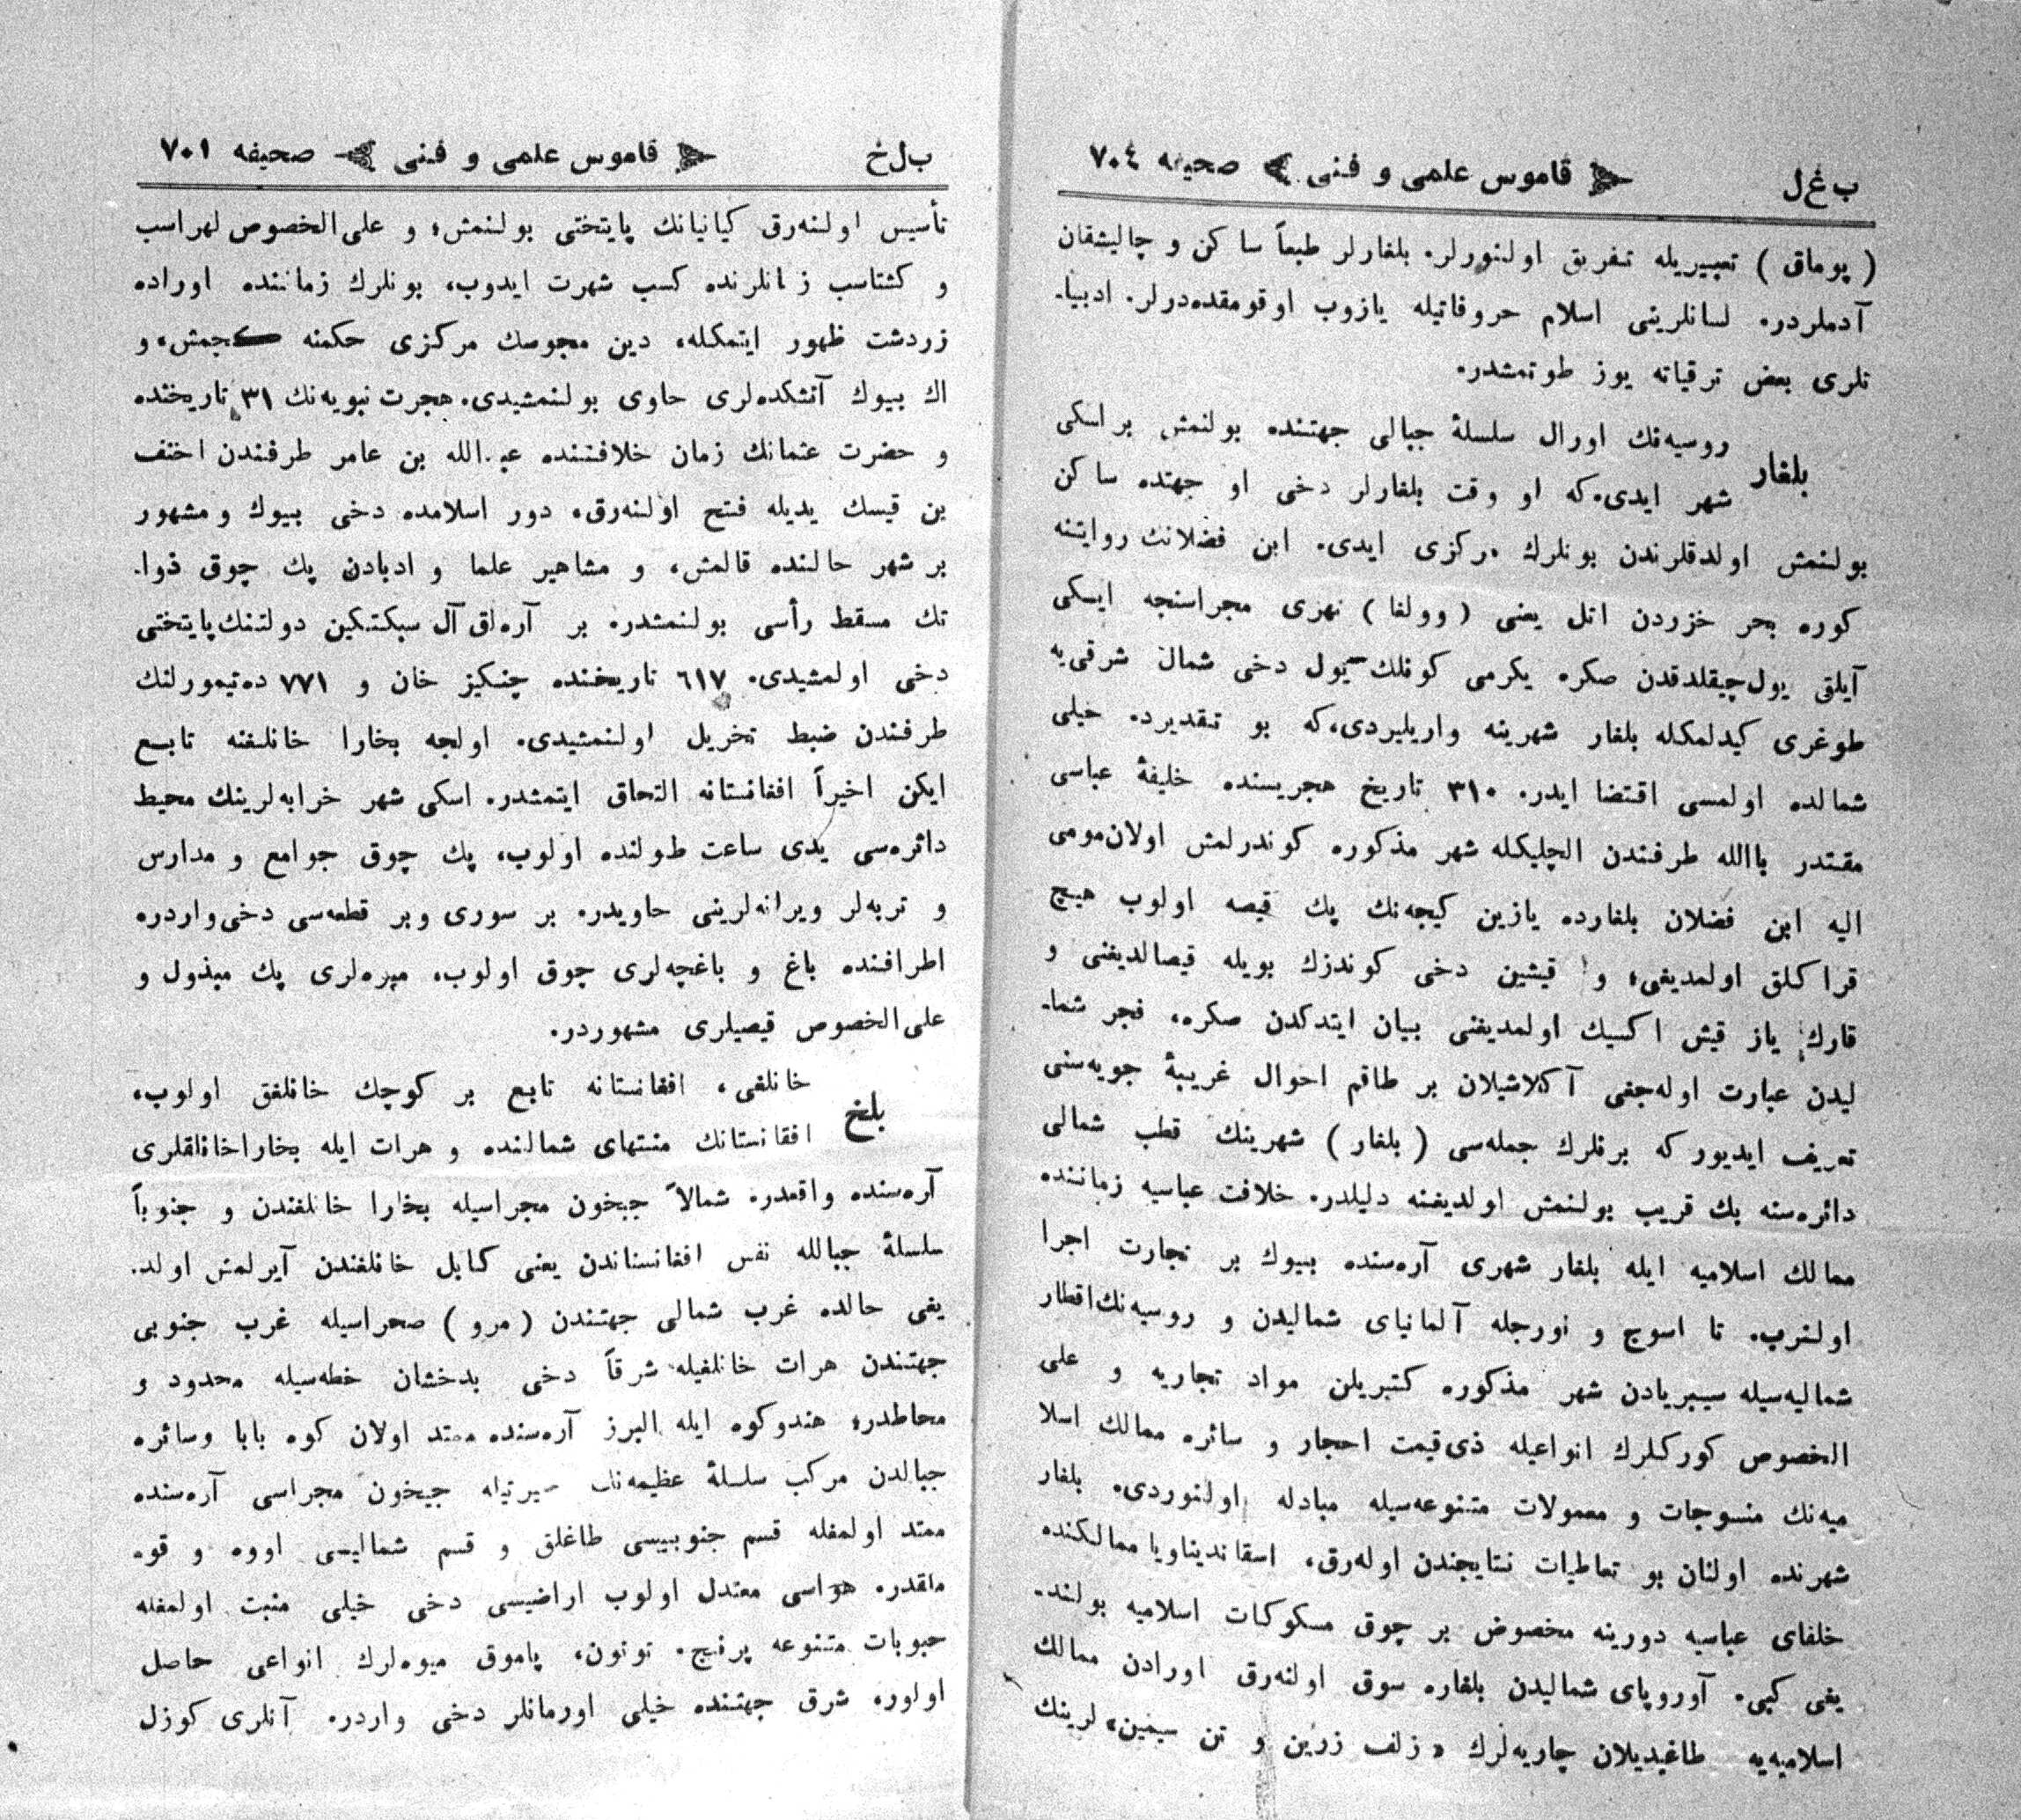 ب‌غ‌ل قاموس علمی و فنی صحیفه ٧٠٤
( پوماق ) تعبیریله تفریق اولنورلر. بلغارلر طبعاً ساکن و چالیشقان
آدملردر. لسانلرینی اسلام حروفاتیله یازوب اوقومقده‌درلر. ادبیا-
تلری بعض ترقیاته یوز طوتمشدر.
بلغار
روسیه‌نك اورال سلسلهٔ جبالی جهتنده بولنمش بر اسکی
شهر ایدی، که او وقت بلغارلر دخی او جهتده ساکن
بولنمش اولدقلرندن بونلرك مرکزی ایدی. ابن فضلانك روایتنه
کوره بحر خزردن اتل یعنی ( وولغا ) نهری مجراسنجه ایکی
آیلق یول‌چیقلدقدن صکره یکرمی کونلك یول دخی شمال شرقی‌یه
طوغری کیدلمکله بلغار شهرینه واریلیردی، که بو تقدیرد. خیلی
شمالده اولمسی اقتضا ایدر. ٣١٠ تاریخ هجریسنده خلیفهٔ عباسی
مقتدر باالله طرفندن الچلیکله شهر مذکوره کوندرلمش اولان‌مومی
الیه ابن فضلان بلغارده یازین کیجه‌نك پك قیصه اولوب هیچ
قراکلق اولمدیغی؛ و قیشین دخی کوندزك بویله قیصالدیغنی و
قارك یاز قیش اکسیك اولمدیغنی بیان ایتدکدن صکره، فجر شما-
لیدن عبارت اوله‌جغی آکلاشیلان بر طاقم احوال غریبهٔ جویه‌سنی
تعریف ایدیور که برنلرك جمله‌سی ( بلغار ) شهرینك قطب شمالی
دائره‌سنه پك قریب بولنمش اولدیغنه دلیلدر. خلافت عباسیه زماننده
ممالك اسلامیه ایله بلغار شهری آره‌سنده بیوك بر تجارت اجرا
اولنرب. تا اسوج و نورجله آلمانیای شمالیدن و روسیه‌نك‌اقطار
شمالیه‌سیله سیبریادن شهر مذکوره کتیریلن مواد تجاریه و علی
الخصوص کورکلرك انواعیله ذی‌قیمت احجار و سائره ممالك اسلا
میه‌نك منسوجات و معمولات متنوعه‌سیله مبادله اولنوردی. بلغار
شهرنده اولنان بو تعاطیات نتایجندن اوله‌رق، اسقاندیناویا ممالکنده
خلفای عباسیه دورینه مخصوص بر چوق مسکوکات اسلامیه بولند-
یغی کبی. آوروپای شمالیدن بلغاره سوق اولنه‌رق اورادن ممالك
اسلامیه‌یه طاغیدیلان جاریه‌لرك « زلف زرین و تن سیمین» لرینك
ب‌ل‌خ قاموس علمی و فنی صحیفه ٧٠١
تأسیس اولنه‌رق کیانیانك پایتختی بولنمش؛ و علی‌الخصوص لهراسب
و کشتاسب زمانلرنده کسب شهرت ایدوب، بونلرك زماننده اوراده
زردشت ظهور ایتمکله، دین مجوسك مرکزی حکمنه کچمش، و
اك بیوك آتشکده‌لری حاوی بولنمشیدی. هجرت نبویه‌نك ٣١ تاریخنده
و حضرت عثمانك زمان خلافتنده عبدالله بن عامر طرفندن احنف
بن قیسك یدیله فتح اولنه‌رق، دور اسلامده دخی بیوك و مشهور
بر شهر حالنده قالمش، و مشاهیر علما و ادبادن پك چوق ذوا-
تك مسقط رأسی بولنمشدر. بر آره‌لق آل سبکتکین دولتنك‌پایتختی
دخی اولمشیدی. ٦١٧ تاریخنده چنکیز خان و ٧٧١ ده‌تیمورلنك
طرفندن ضبط تخریل اولنمشیدی. اولجه بخارا خانلغنه تابع
ایکن اخیراً افغانستانه التحاق ایتمشدر. اسکی شهر خرابه‌لرینك محیط
دائره‌سی یدی ساعت طولنده اولوب، پك چوق جوامع و مدارس
و تربه‌لر ویرانه‌لرینی حاویدر. بر سوری وبر قطعه‌سی دخی‌واردره
اطرافنده باغ و باغچه‌لری چوق اولوب، میوه‌لری پك مبذول و
علی‌الخصوص قیصیلری مشهوردر.
بلخ
خانلغی، افغانستانه تابع بر کوچك خانلغق اولوب،
افغانستانك منتهای شمالنده و هرات ایله بخاراخانلقلری
آره‌سنده واقعدر. شمالاً جیحون مجراسیله بخارا خانلغندن و جنوباً
سلسلهٔ جبالله نفس افغانستاندن یعنی کابل خانلغندن آیرلمش اولد-
یغی حالده غرب شمالی جهتندن ( مرو ) صحراسیله غرب جنوبی
جهتندن هرات خانلغیله شرقاً دخی بدخشان خطه‌سیله محدود و
محاطدر؛ هندوکوه ایله البرز آره‌سنده ممتد اولان کوه بابا وسائره
جبالدن مرکب سلسلهٔ عظیمه‌نك جیحون مجراسی آره‌سنده
ممتد اولمغله قسم جنوبیسی طاغلق و قسم شمالیسی اووه و قو-
ملقدر. هواسی معتدل اولوب اراضیسی دخی خیلی منبت اولمغله
حبوبات متنوعه پرنج. توتون، پاموق میوه‌لرك انواعی حاصل
اولور. شرق جهتنده خیلی اورمانلر دخی واردر. آتلری کوزل